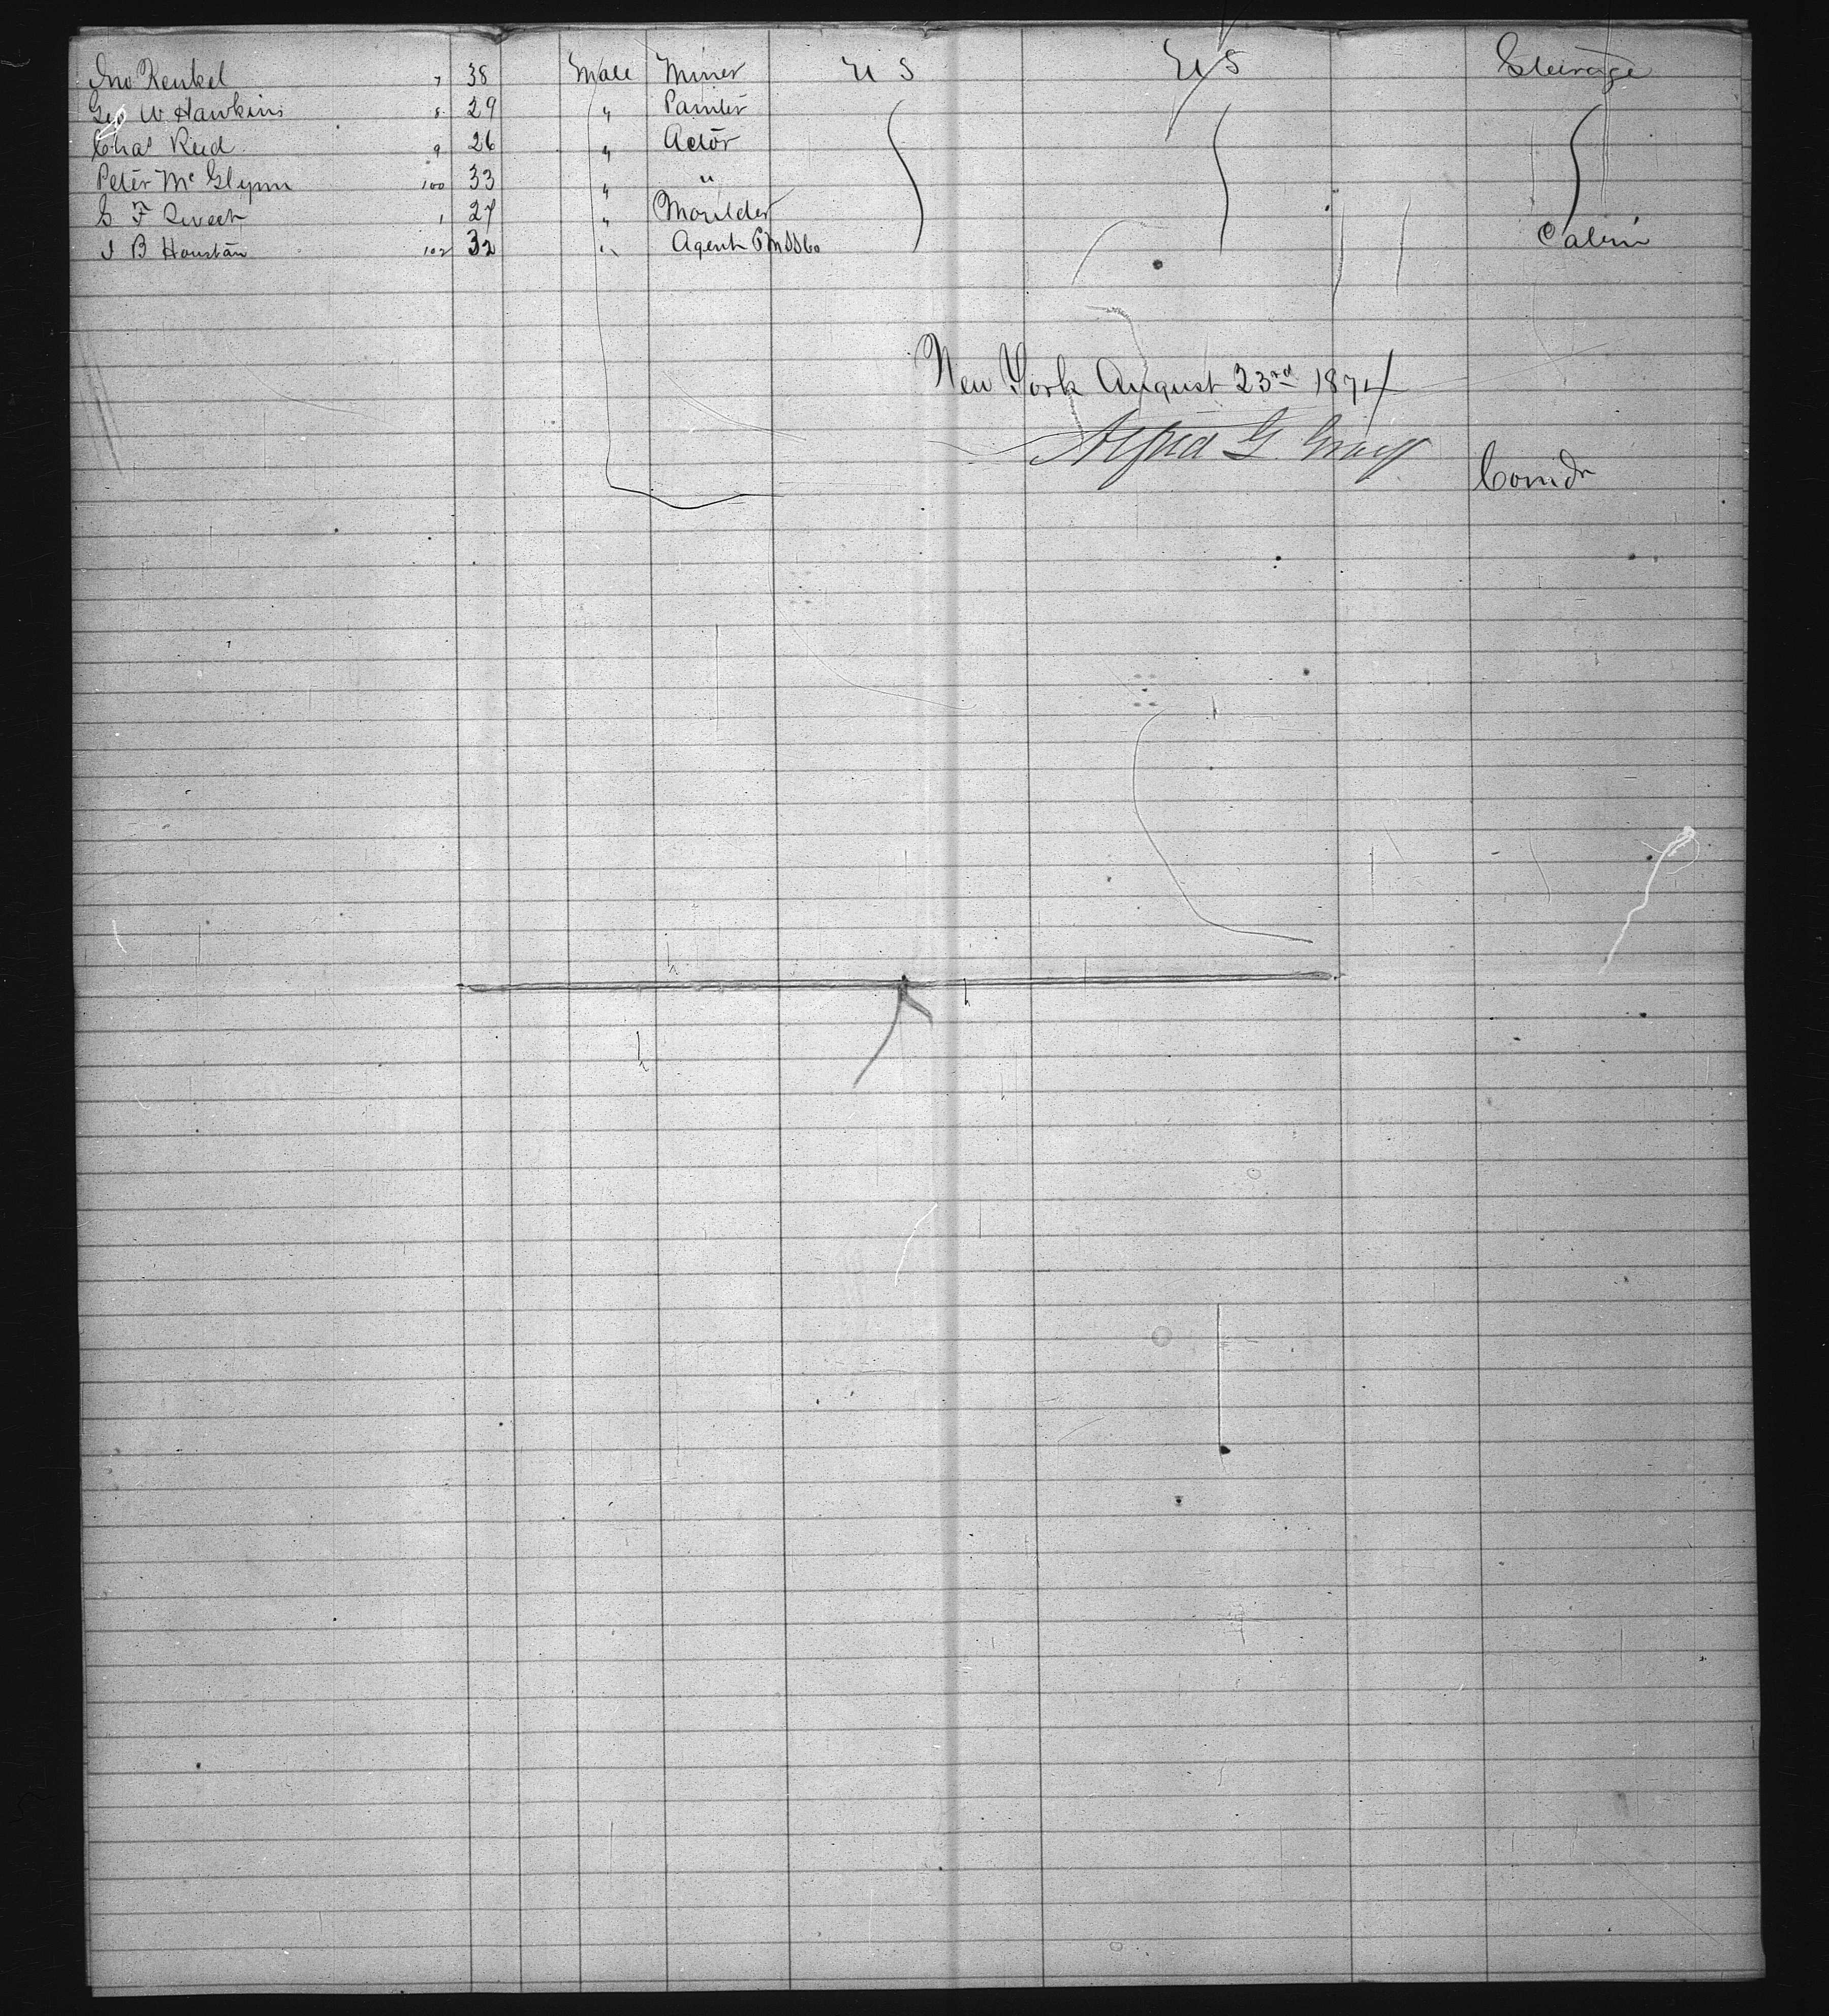 Jno Kenkel 7 38 Male Miner U S U S Steerage
Geo W Hawkins 8 29 " Painter
Chas Reed 9 26 " Actor
Peter Mc Glynn 100 33 " "
G F Sweet 1 27 " Moulder
J B Houston 102 32 " Agent P M SS Co Cabin
New York August 23rd 1874
Alfred G. Gray
Comdr